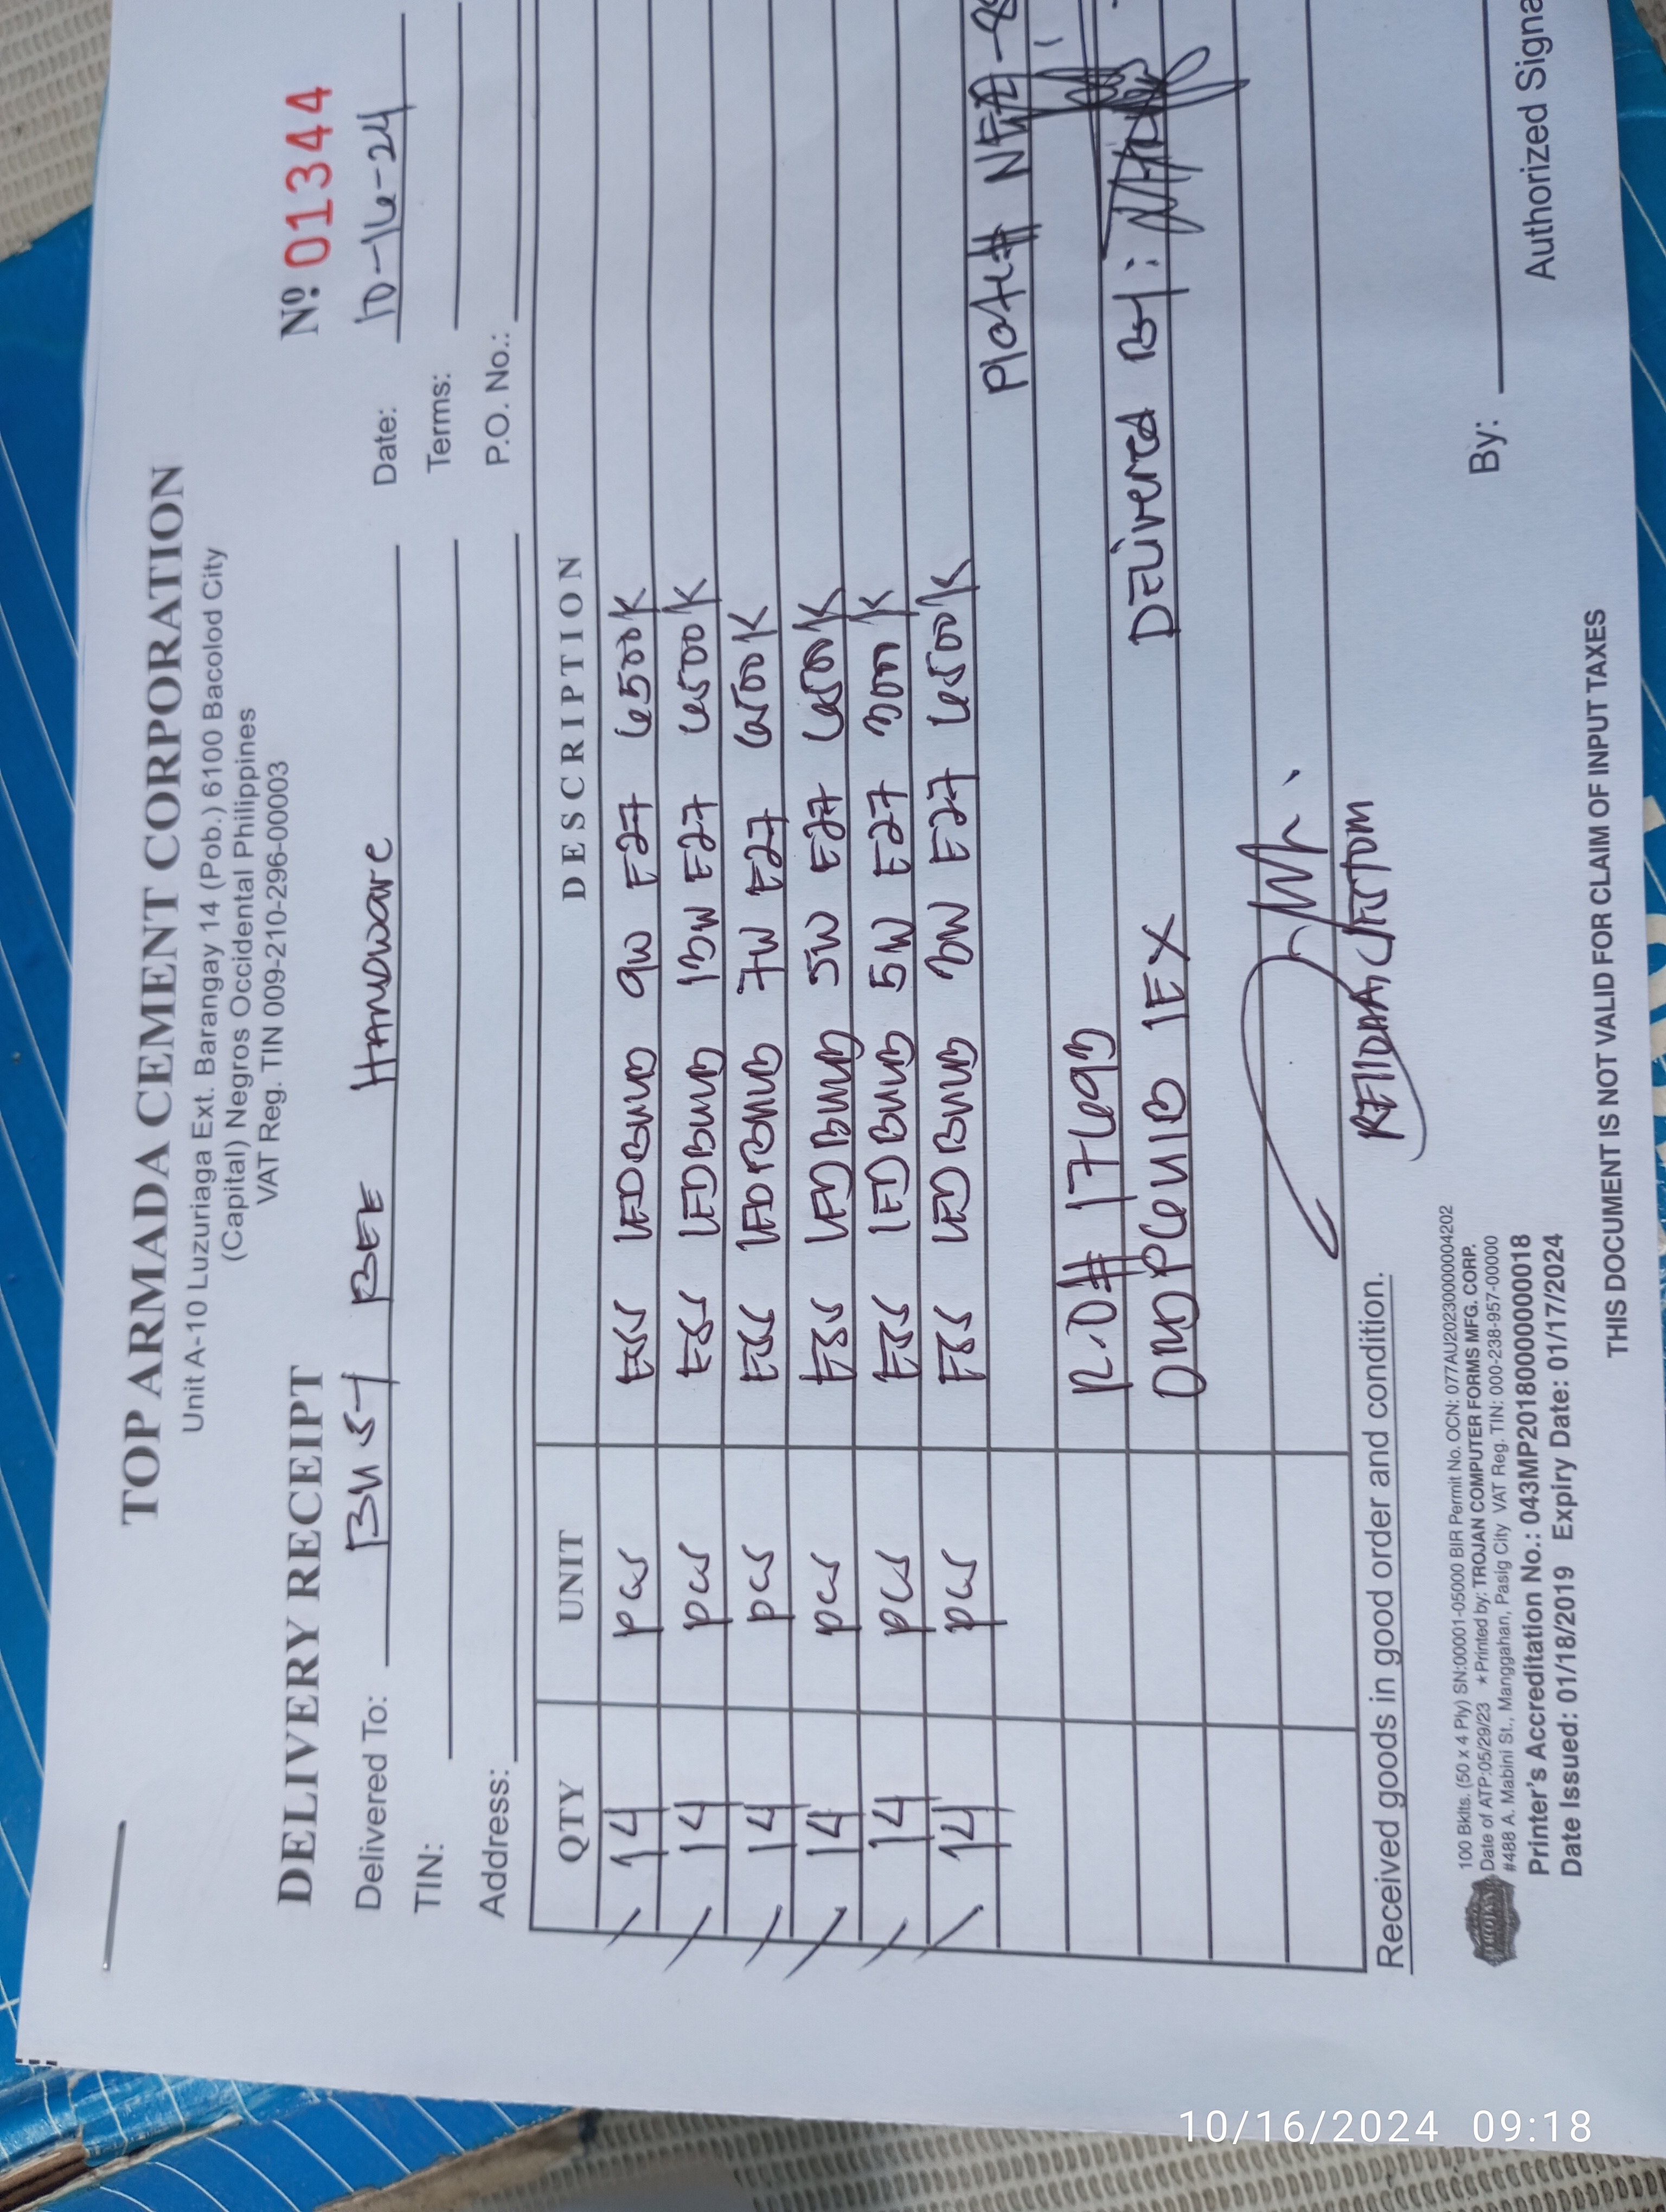 TOP ARMADA CEMENT CORPORATION
Unit A-10 Luzuriaga Ext. Barangay 14 (Pob.) 6100 Bacolod City
(Capital) Negros Occidental Philippines
VAT Reg. TIN 009-210-296-00003
DELIVERY RECEIPT
Nº 01344
Delivered To: BUSY BEE HARDWARE
Date: 10-16-24
TIN:
Terms:
Address:
P.O. No.:
QTY UNIT DESCRIPTION
14 pcs ESS LEDBULB 9W E27 6500K
14 pcs ESS LEDBULB 13W E27 6500K
14 pcs ESS LEDBULB 7W E27 6500K
14 pcs ESS LEDBULB 5W E27 6500K
14 pcs ESS LEDBULB 5W E27 3000K
14 pcs ESS LEDBULB 3W E27 6500K
Plate#
R.O# 17699
Delivered By:
Received goods in good order and condition.
By:
Authorized Signa
100 Bklts. (50 x 4 Ply) SN:00001-05000 BIR Permit No. OCN: 077AU20230000004202
Date of ATP:05/29/23 ★Printed by: TROJAN COMPUTER FORMS MFG. CORP.
#488 A. Mabini St., Manggahan, Pasig City VAT Reg. TIN: 000-238-957-00000
Printer's Accreditation No.: 043MP20180000000018
Date Issued: 01/18/2019 Expiry Date: 01/17/2024
THIS DOCUMENT IS NOT VALID FOR CLAIM OF INPUT TAXES
10/16/2024 09:18